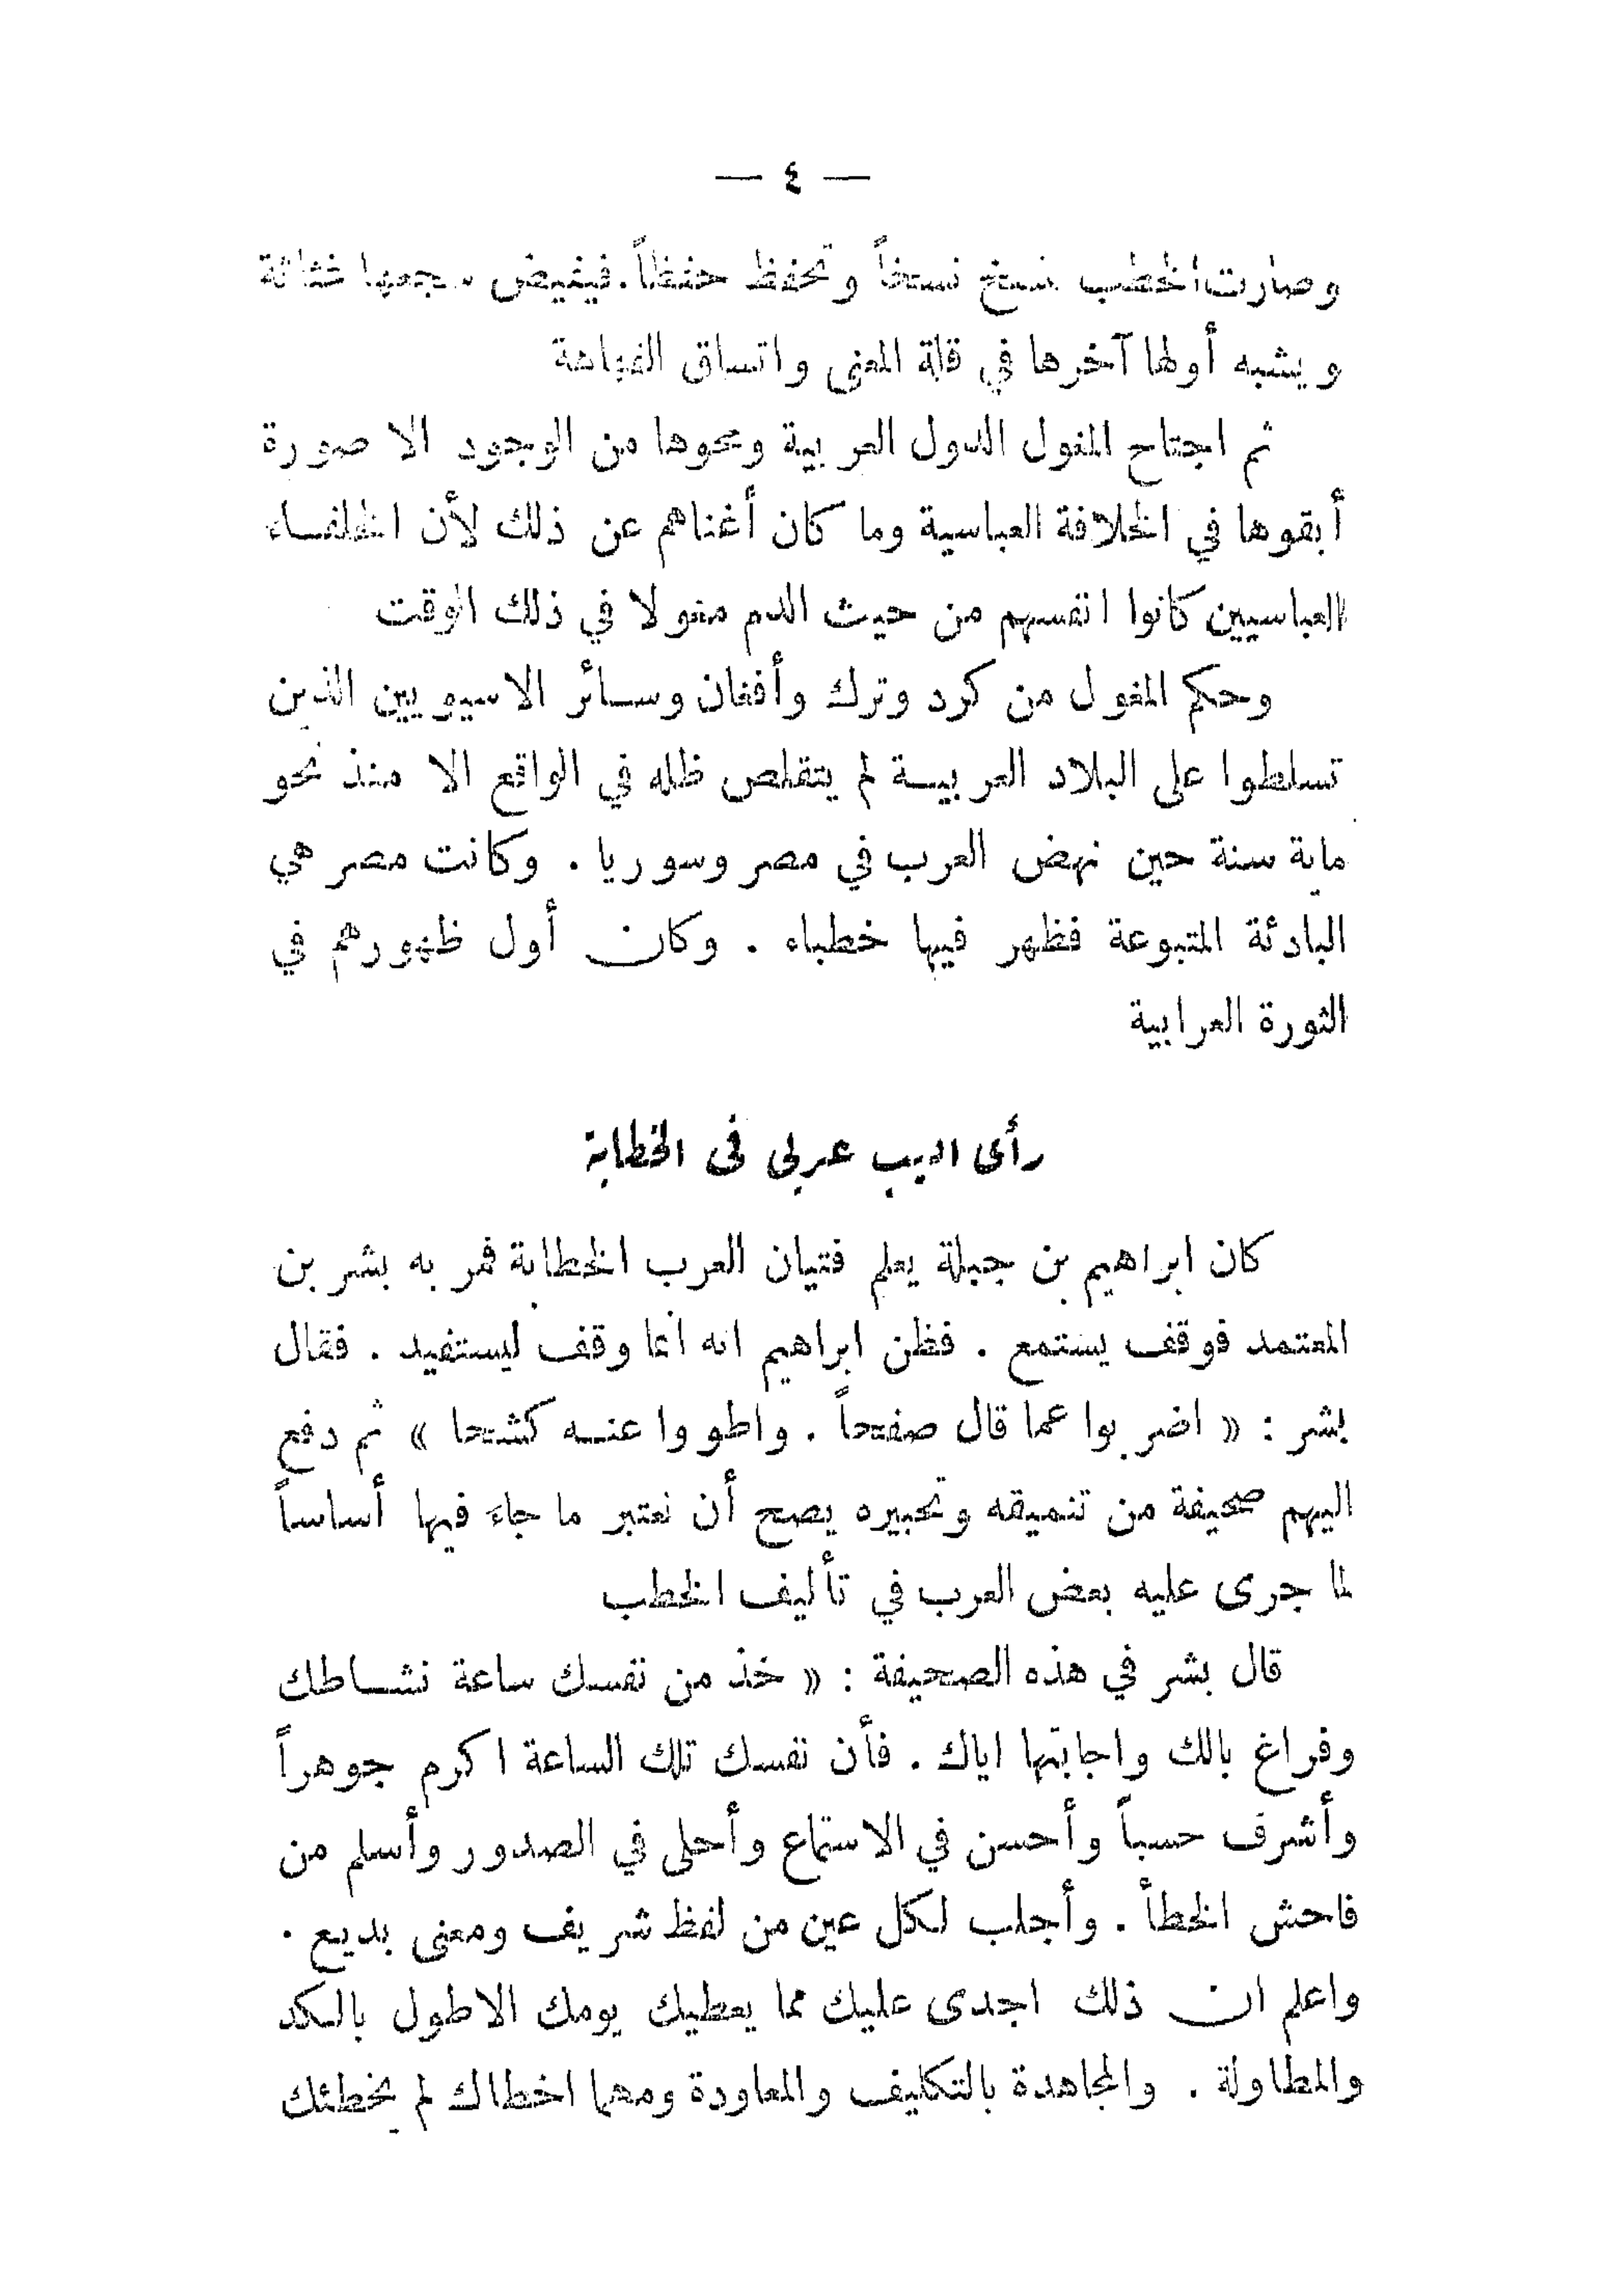 — ٤ —
وصارت الخطب تنسخ نسخاً وتحفظ حفظاً. فيفيض سجعها غثاثة
ويشبه أولها آخرها في قلة المعنى واتساق الفهاهة
ثم اجتاح المغول الدول العربية ومحوها من الوجود الا صورة
أبقوها في الخلافة العباسية وما كان أغناهم عن ذلك لأن الخلفاء
العباسيين كانوا انفسهم من حيث الدم مغولا في ذلك الوقت
وحكم المغول من كرد وترك وأفغان وسائر الاسيويين الذين
تسلطوا على البلاد العربية لم يتقلص ظله في الواقع الا منذ نحو
ماية سنة حين نهض العرب في مصر وسوريا . وكانت مصر هي
البادئة المتبوعة فظهر فيها خطباء . وكان أول ظهورهم في
الثورة العرابية
رأى اديب عربى فى الخطابة
كان ابراهيم بن جبلة يعلم فتيان العرب الخطابة فمر به بشر بن
المعتمد فوقف يستمع . فظن ابراهيم انه انما وقف ليستفيد . فقال
بشر : « اضربوا عما قال صفحاً . واطووا عنه كشحا » ثم دفع
اليهم صحيفة من تنميقه وتحبيره يصح أن نعتبر ما جاء فيها أساساً
لما جرى عليه بعض العرب في تأليف الخطب
قال بشر في هذه الصحيفة : « خذ من نفسك ساعة نشاطك
وفراغ بالك واجابتها اياك . فأن نفسك تلك الساعة اكرم جوهراً
وأشرف حسباً وأحسن في الاستماع وأحلى في الصدور وأسلم من
فاحش الخطأ . وأجلب لكل عين من لفظ شريف ومعنى بديع .
واعلم ان ذلك اجدى عليك مما يعطيك يومك الاطول بالكد
والمطاولة . والمجاهدة بالتكليف والمعاودة ومهما اخطاك لم يخطئك